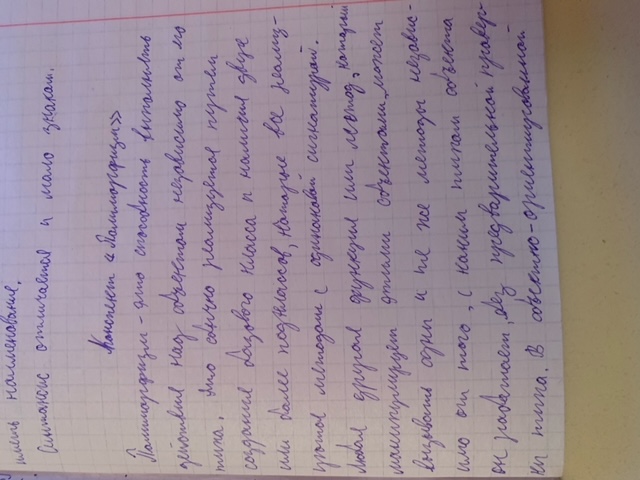 иметь наименование.
Синтаксис отличается и мало знаком.
Конспект «Полиморфизм»
Полиморфизм – это способность выполнять
действия над объектом независимо от его
типа. Это обычно реализуется путем
создания базового класса и наличия двух
или более подклассов, которые все реализ-
уются методами с одинаковой сигнатурой.
Любая другая функция или метод, который
манипулирует этими объектами, может
вызывать одни и те же методы независ-
имо от того, с каким типом объекта
он работает, без предварительной провер-
ки типа. В объектно-ориентированной